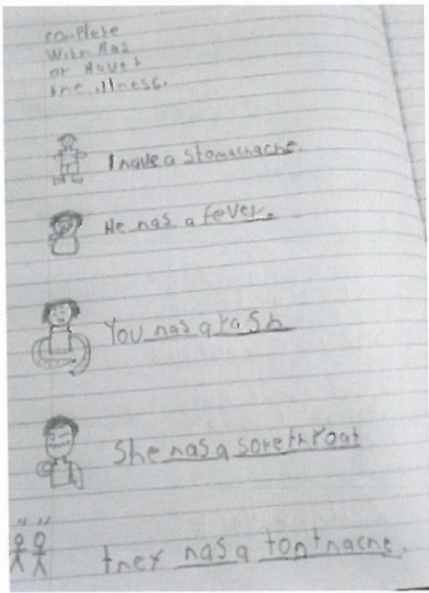 complete
with Has
or Have t
the illness.
I have a stomachache.
He has a fever.
You has a rash
She has a sorethroat
they has a tonthache.